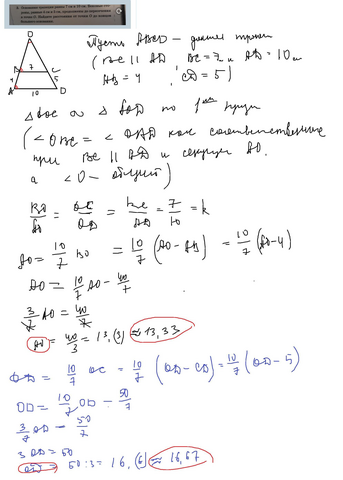 O
B 7 C
4 5
A 10 D
Пусть ABCD – данная трап
(BC || AD BC = 7 и AD = 10 и
AB = 4, CD = 5)
△BOC ∾ △AOD по 1
(<OBC = <OAD как соответственные
при BC || AD и секущей AO.
а <O – общий)
BO/AO = OC/OD = BC/AD = 7/10 = k
AO = 10/7 BO = 10/7 (AO – AB) = 10/7 (AO – 4)
AO = 10/7 AO – 40/7
3/7 AO = 40/7
AO = 40/3 = 13,(3) ≈ 13,33
OD = 10/7 OC = 10/7 (OD – CD) = 10/7 (OD – 5)
OD = 10/7 OD – 50/7
3/7 OD = 50/7
3 OD = 50
OD = 50:3 = 16,(6) ≈ 16,67